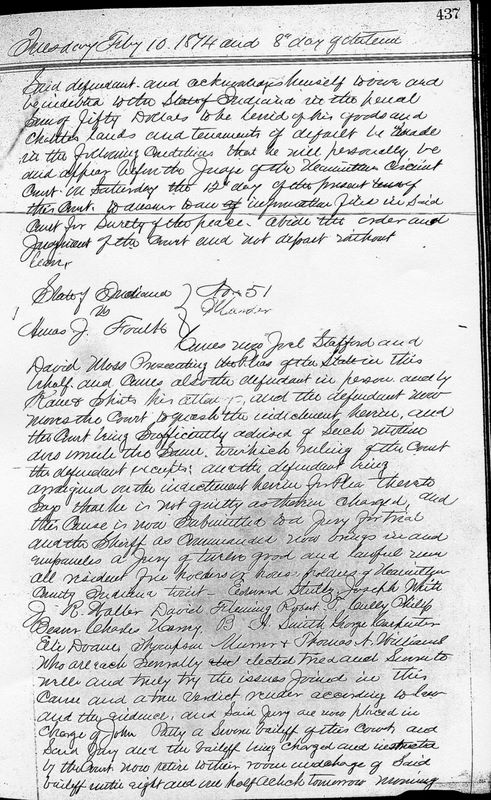 437
Tuesday Feby 10. 1874 and 8th day of
Said defendant and acknowledges himself to owe and
be indebted to the State of Indiana in the penal
Sum of Fifty Dollars to be levied of his goods and
Chattles lands and tenaments if default be made
in the following Conditions that he will personally be
and appear before the Judge of the Hamilton Circuit
Court on Saturday the 12th day of the present term of
this Court. to answer to an information filed in Said
Court for Surety of the peace. abide the order and
Judgment of the Court and not depart without
leave
State of Indiana } No 51
vs } Murder
Amos J. Foulk }
Comes now Joel Stafford and
David Moss Prosecuting the Pleas of the State in this
behalf and Comes also the defendant in person and by
Kane & Shirts his attorneys, and the defendant now
moves the Court to quash the indictment herein, and
the Court being Sufficiently advised of Such motion
overrule the Same. to which ruling of the Court
the defendant excepts: and the defendant being
arraigned on the indictment herein for plea thereto
Says that he is not guilty as therein Charged, and
this Cause is now Submitted to a Jury for trial
and the Sheriff as Commanded now brings in and
empanels a Jury of twelve good and lawful men
all resident free holders or house holders of Hamilton
County Indiana to wit - Edward Joseph White
J. R. Walter David Fleming Robert T. Philip
Beaver Charles B. A. Smith George Carpenter
Eli Doane Thompson & Thomas A. Williams
Who are each Severally elected tried and Sworn to
well and truly try the issues Joined in this
Cause and a true Verdict render according to law
and the evidence, and Said Jury are now placed in
Charge of John Petty a Sworn bailiff of this Court, and
Said Jury and the bailiff being Charged and instructed
by the Court now retire to their room in charge of Said
bailiff until eight and one half o'clock tomorrow morning